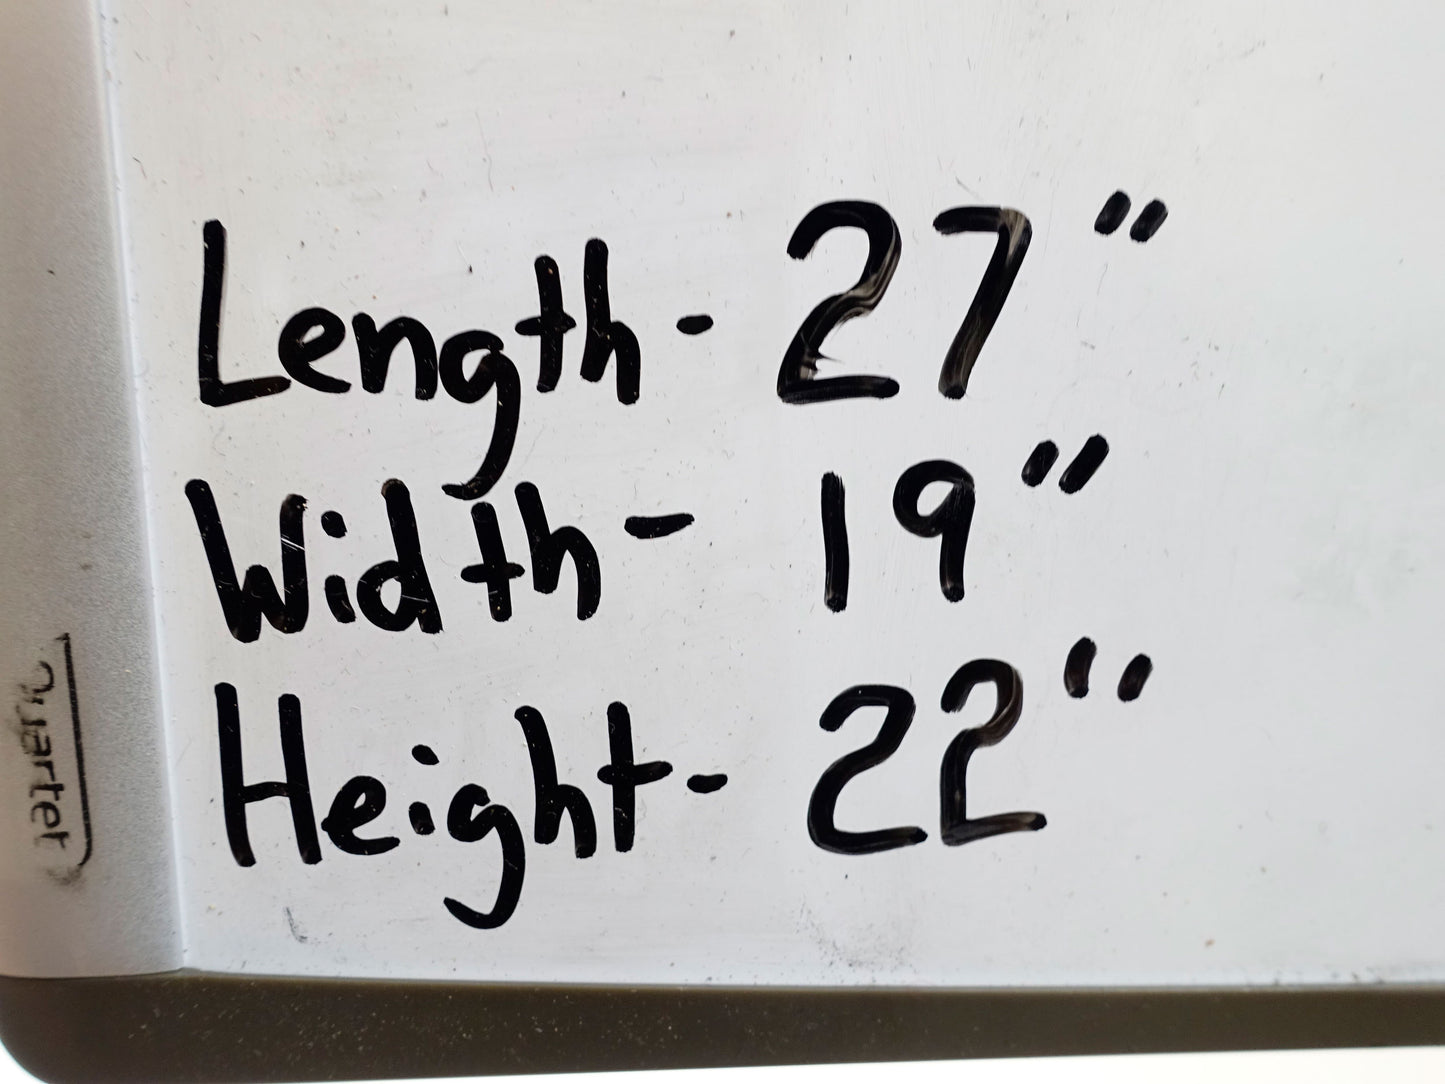 Length- 27"
Width- 19"
Height- 22"
Quartet